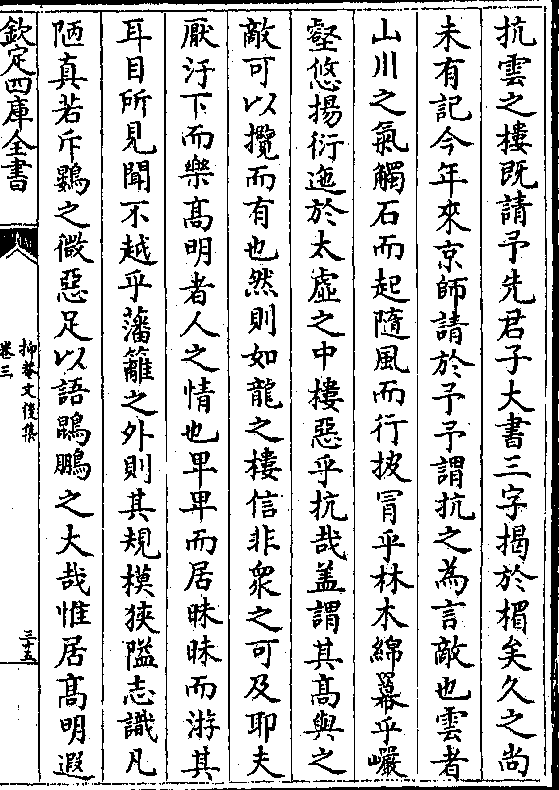 抗雲之樓既請予先君子大書三字揭於楣矣久之尚
未有記今年來京師請於予予謂抗之為言敵也雲者
山川之氣觸石而起隨風而行披冐乎林木綿冪乎巖
壑悠揚衍迤於太虛之中樓惡乎抗哉盖謂其髙與之
敵可以攬而有也然則如龍之樓信非衆之可及耶夫
厭汙下而樂髙明者人之情也卑卑而居昧昧而游其
耳目所見聞不越乎藩籬之外則其規模狹隘志識凡
陋真若斥鷃之微惡足以語鵾鵬之大哉惟居髙明遐
欽定四庫全書
抑菴文後集
卷三
三十五